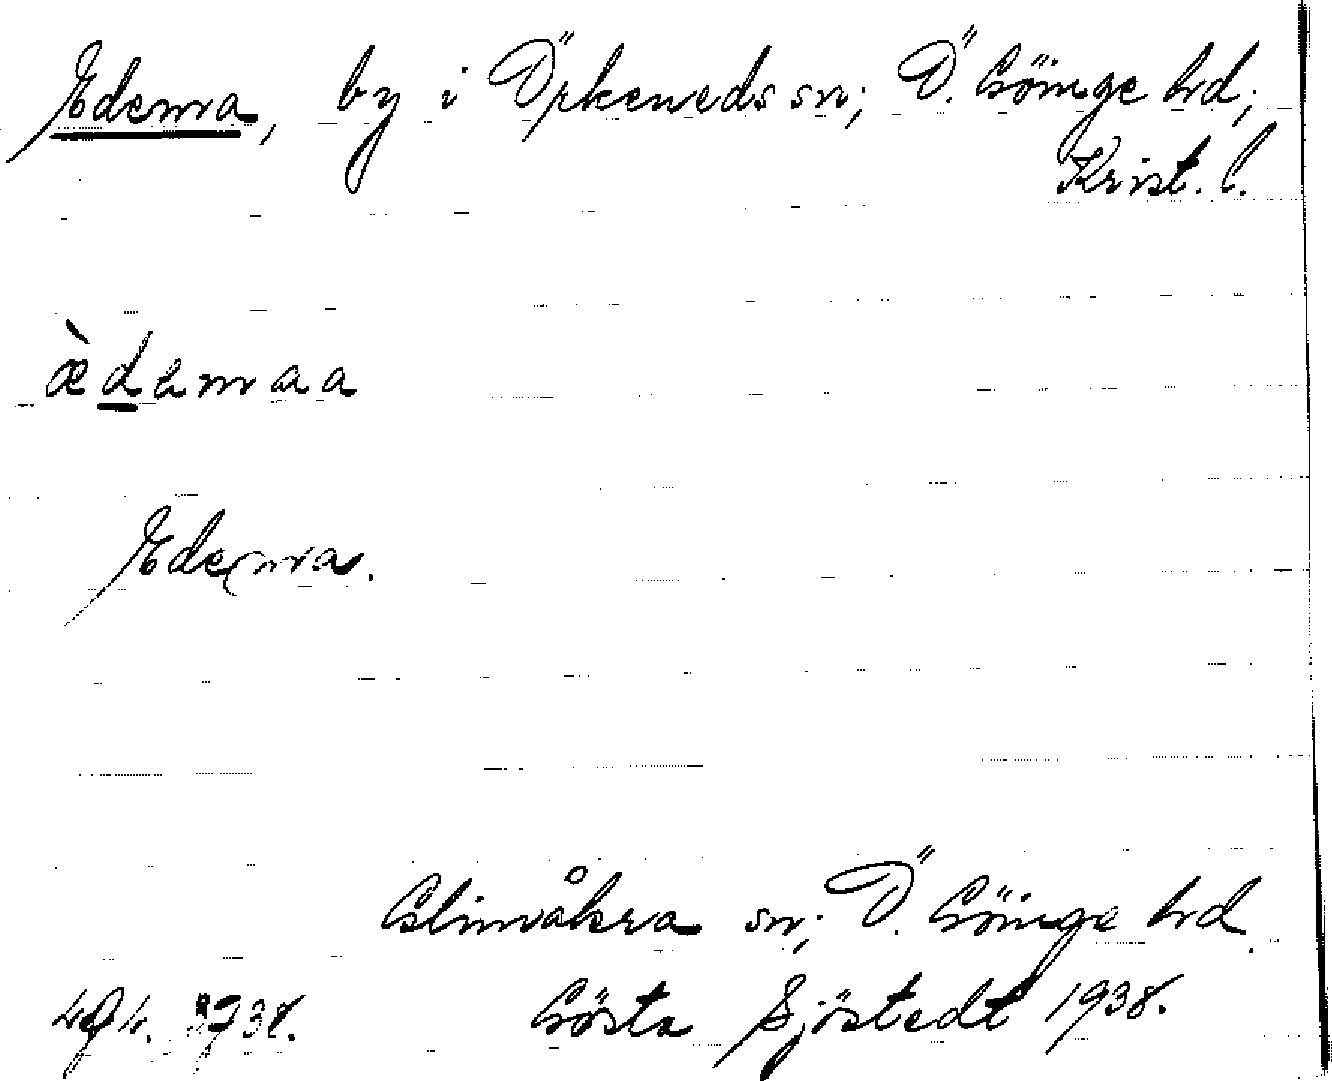 Edema, by i Örkeneds sn; Ö. Göinge hd;
Krist. l.
æ̀damaa
Edema.
Glimåkra sn; Ö. Göinge hd
Gösta Sjöstedt 1938.